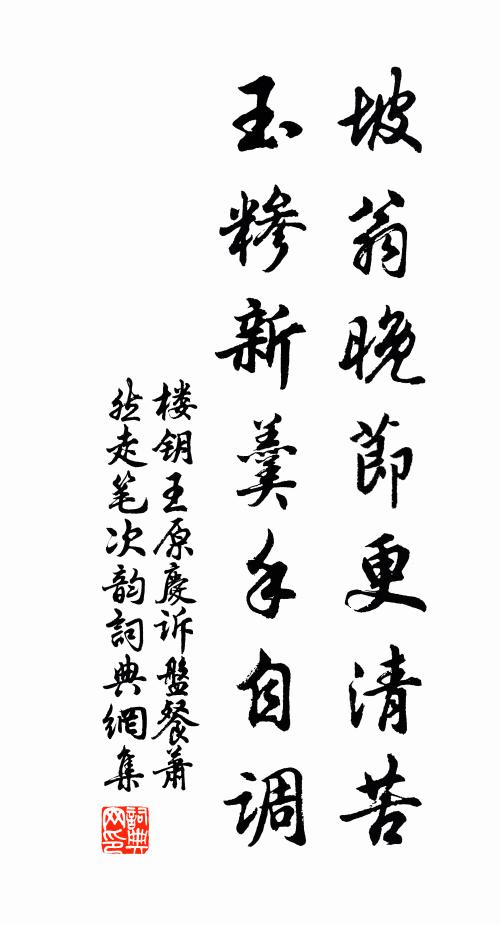 坡翁晚節更清苦
玉糝新羹手自調
楼钥王原慶诉盤餐蕭
然走笔次韵詞典網集
詞典
网印